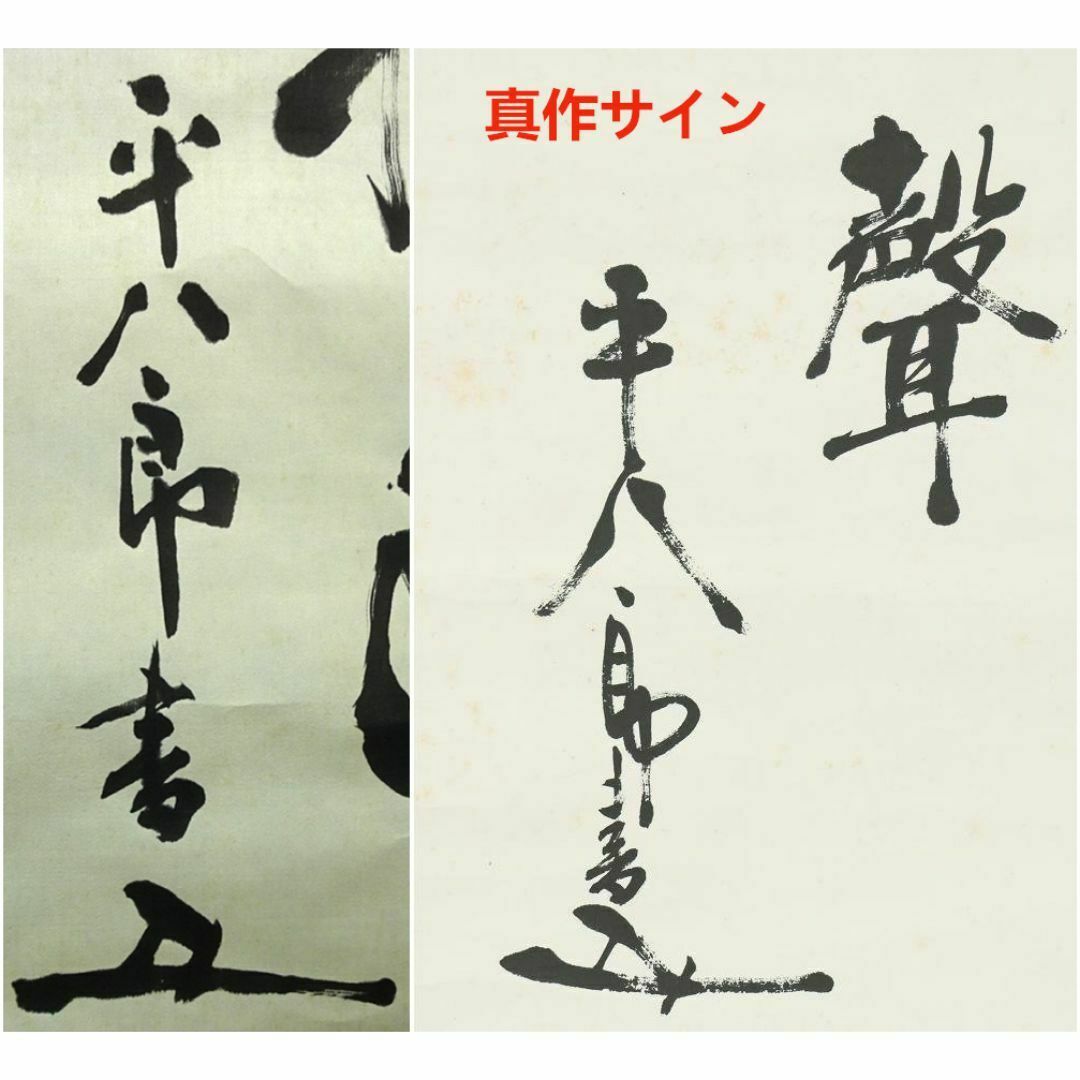 平八郎書
真作サイン
聲
平八郎書